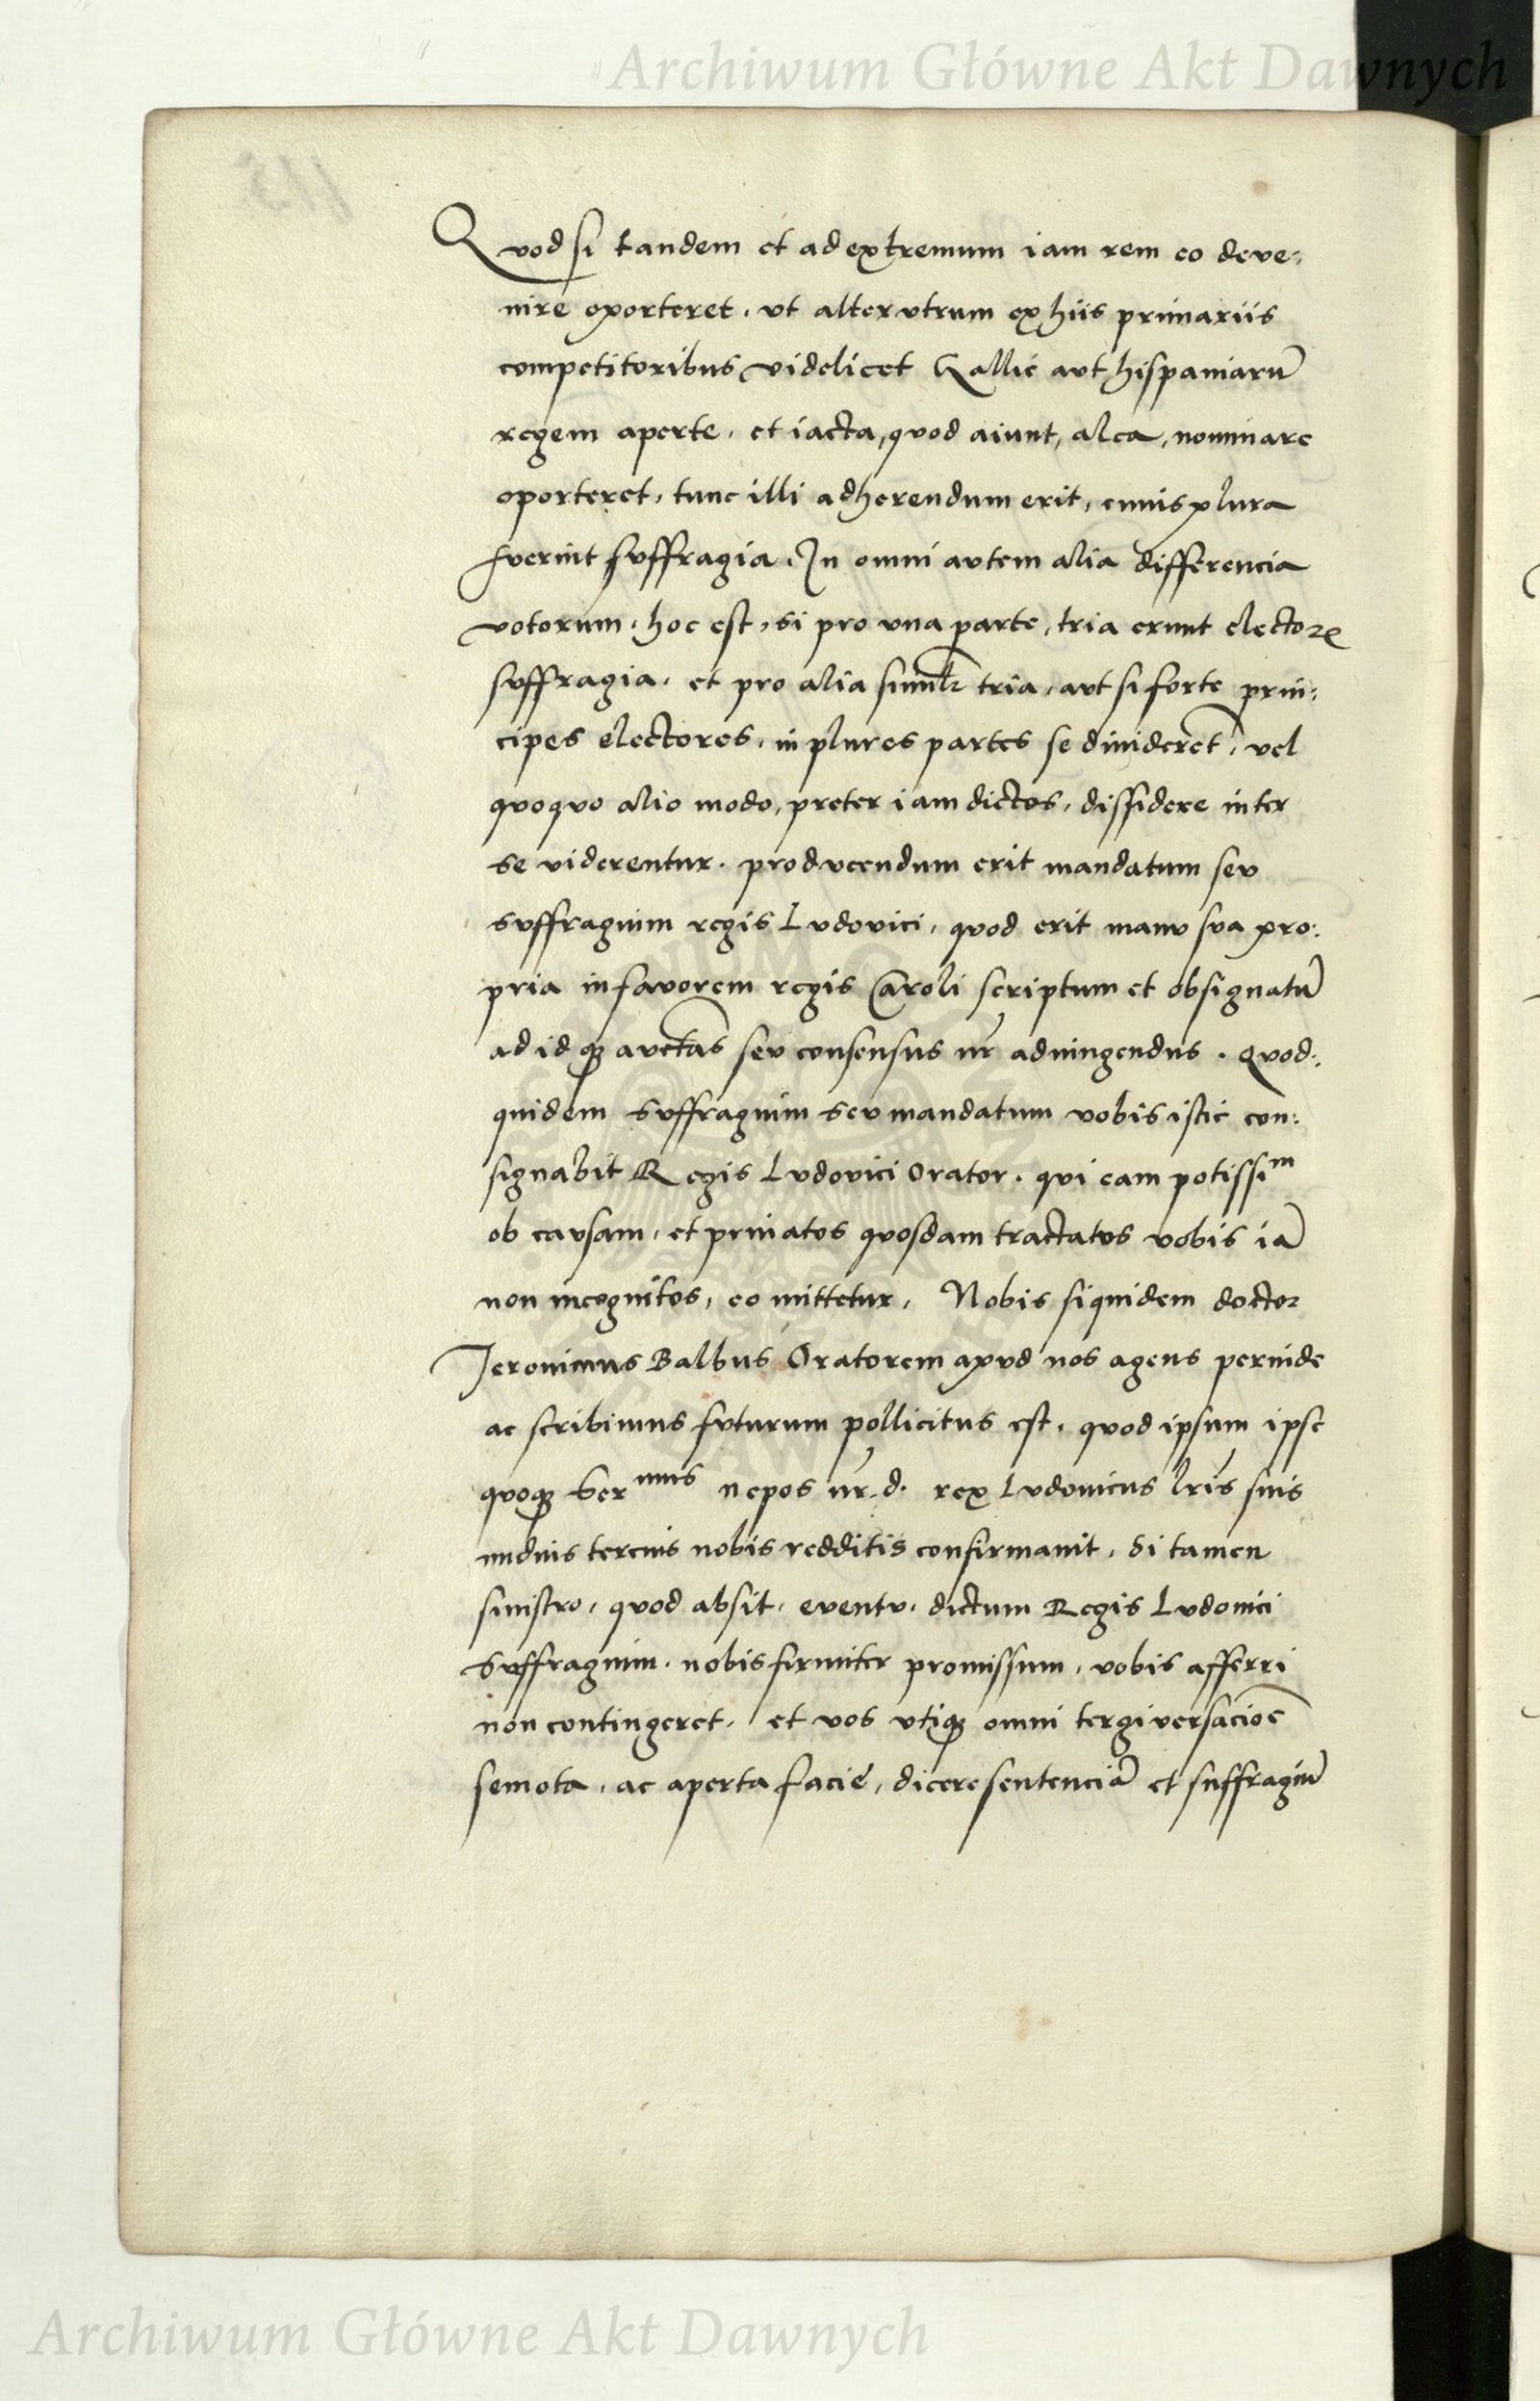 Archiwum Główne Akt Dawnych
Quod si tandem et ad extremum iam rem eo deve:
nire oporteret, ut alterutrum ex hiis primariis
competitoribus videlicet Gallie aut hispaniarū
regem aperte, et iacta, quod aiunt, alea, nominare
oporteret, tunc illi adherendum erit, cuius plura
fuerint suffragia. In omni autem alia differencia
votorum, hoc est, si pro una parte, tria erunt electorꝝ
suffragia, et pro alia simlr tria, aut si forte prin:
cipes electores, in plures partes se dividerēt, vel
quoquo alio modo, preter iam dictos, dissidere inter
se viderentur, producendum erit mandatum seu
suffragium regis Ludovici, quod erit manu sua pro:
pria in favorem regis Caroli scriptum et obsignatū
ad idqȝ auctās seu consensus nr̄ adiungendus. Quod:
quidem suffragium seu mandatum vobis istic con:
signabit Regis Ludovici Orator. qui eam potissiᵐ
ob causam, et privatos quosdam tractatus vobis iā
non incognitos, eo mittetur, Nobis siquidem doctor
Jeronimus Balbus Oratorem apud nos agens perinde
ac scribimus futurum pollicitus est, quod ipsum ipse
quoqȝ Serᵐᵘˢ nepos nr̄. d. rex Ludovicus lr̄is suis
nudius tercius nobis redditis confirmavit, Si tamen
sinistro, quod absit, eventu, dictum Regis Ludovici
Suffragium, nobis firmiter promissum, vobis afferri
non contingeret, et vos utiqȝ omni tergiversaciōe
semota, ac aperta facie, dicere sentenciā et suffragiū
Archiwum Główne Akt Dawnych